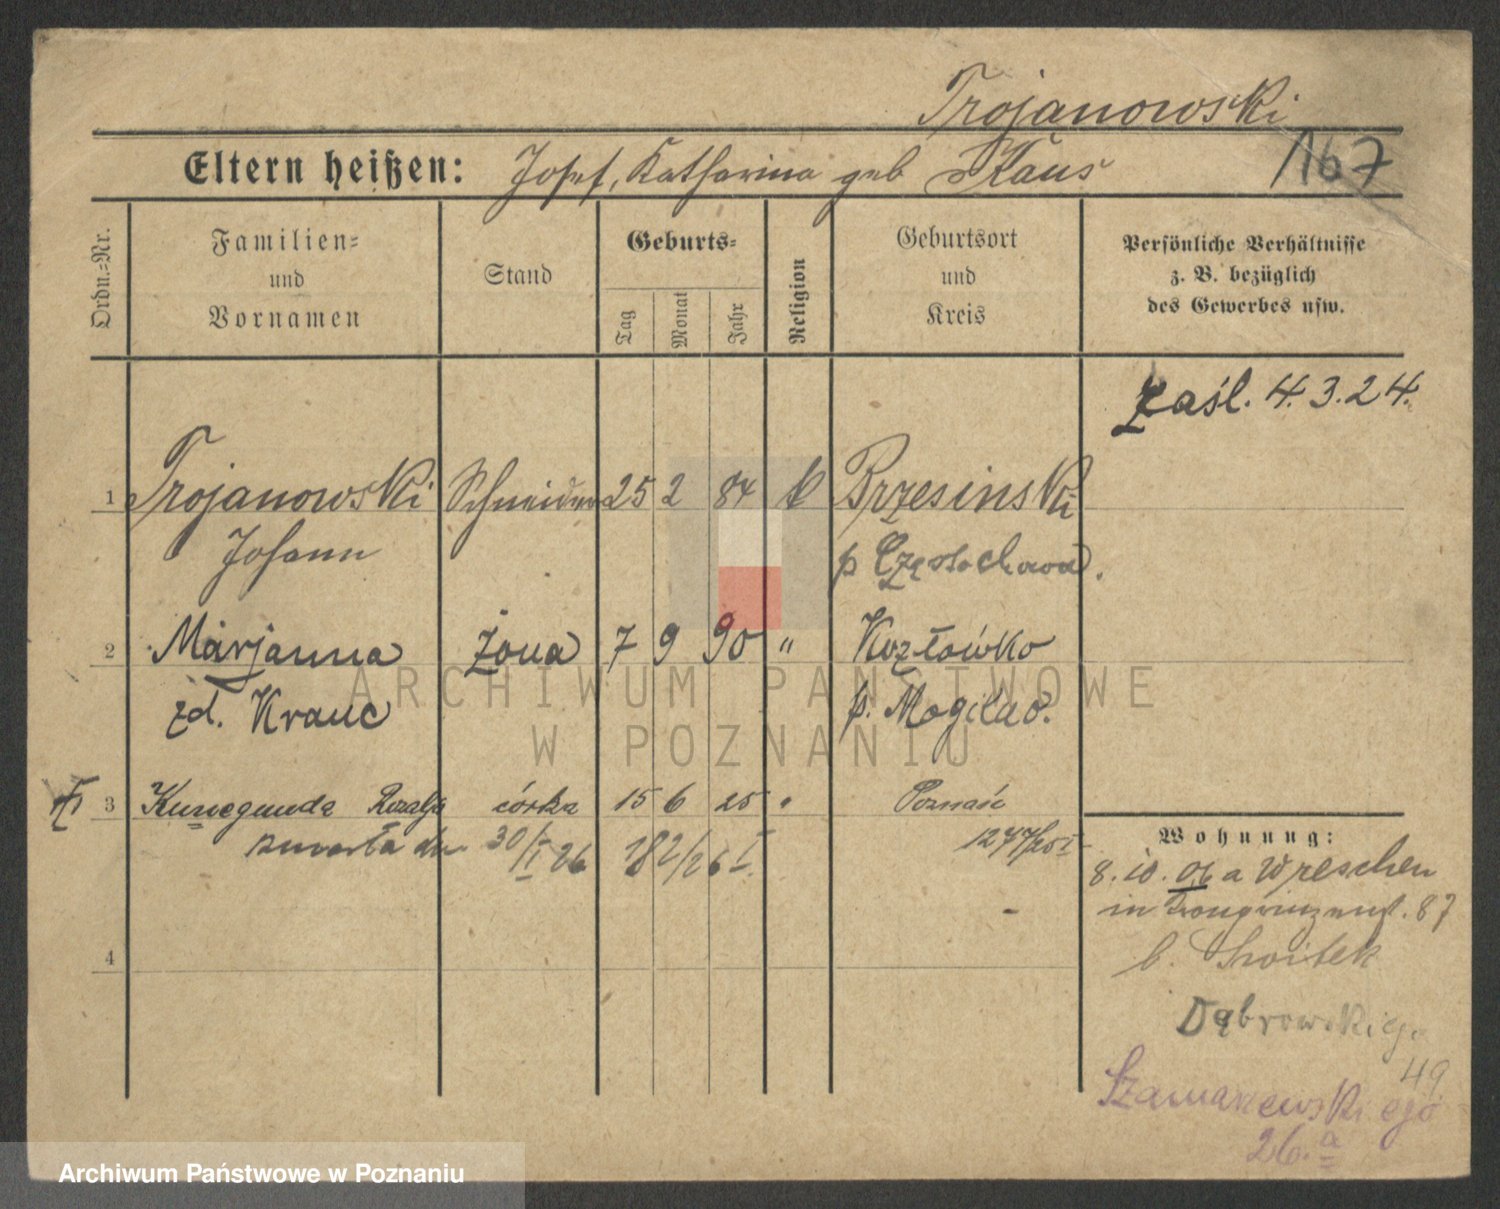 Trojanowski
Eltern heißen: Josef, Katharina geb Kaus
167
Ordn.=Nr.
Familien=
und
Vornamen
Stand
Geburts=
Tag
Monat
Jahr
Religion
Geburtsort
und
Kreis
Persönliche Verhältnisse
z. B. bezüglich
des Gewerbes usw.
zaśl. 4.3.24.
1 Trojanowski Schneider 25 2 84 k Brzesinski
Johann p Częstochowa.
2 Marjanna żona 7 9 90 " Kozłówko
zd. Kranc p. Mogilno.
3 Kunegunda Rozalja córka 15 6 25 " Poznań
zmarła dn 30/I 26 182/26 I.
4
Wohnung:
8. 10. 06 a Wreschen
in 87
b.
Dąbrowskieg.
49
Szamarzewskiego
26.a
ARCHIWUM PAŃSTWOWE
W POZNANIU
Archiwum Państwowe w Poznaniu